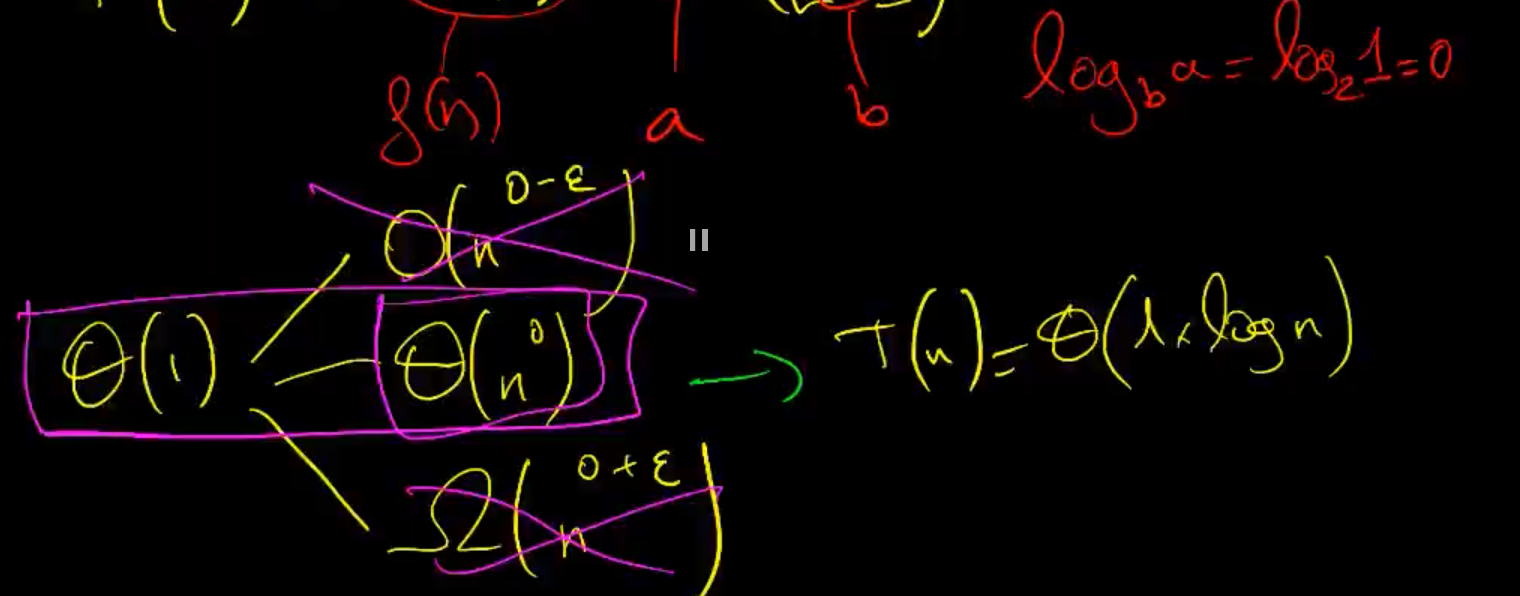 f(n) a b log_b a = log_2 1 = 0
O(n^{0-ε})
Θ(1) Θ(n^0) → T(n) = Θ(1 × log n)
Ω(n^{0+ε})